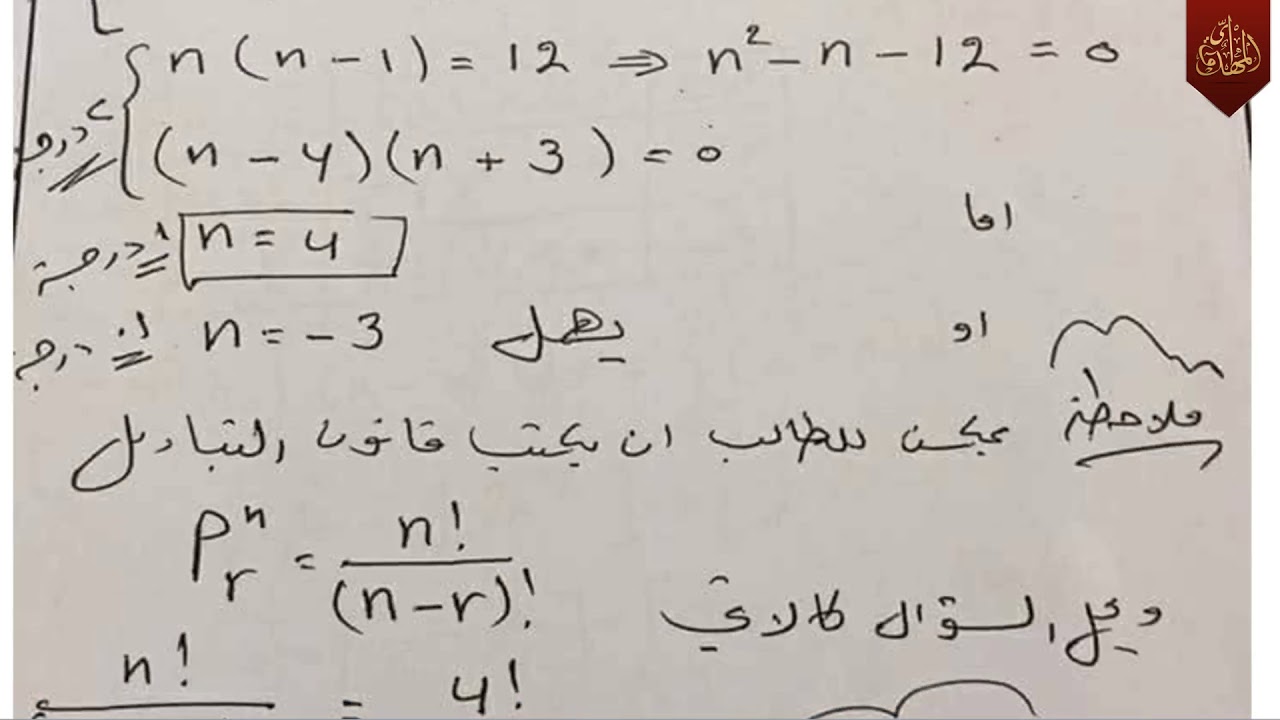 n(n-1)=12 ⇒ n²-n-12=0
٢ درجة (n-4)(n+3)=0
اما n=4 ١ درجة
او n=-3 يهمل ١ درجة
ملاحظة يمكن للطالب ان يكتب قانون التباديل
P^n_r = n!/(n-r)!
ويحل السؤال كالاتي
n! = 4!